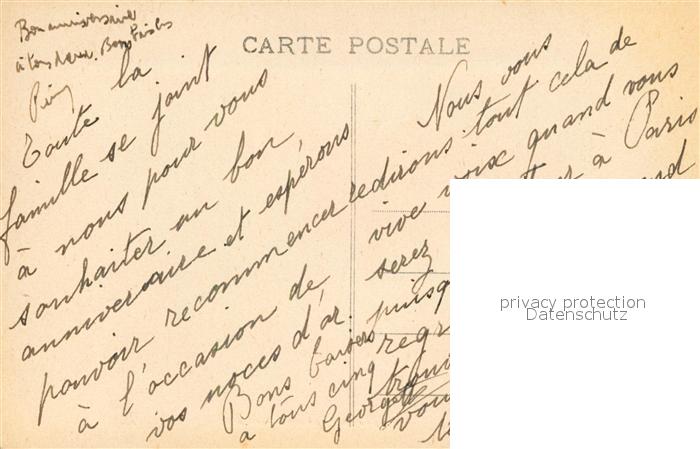 Bon anniversaire
à tous deux. Bons baisers
CARTE POSTALE
Toute la
famille se joint
à nous pour vous
souhaiter un bon
anniversaire et espérons
pouvoir recommencer
à l'occasion de
vos noces d'or.
Bons baisers
à tous cinq
Georgette
Nous vous
redirons tout cela de
vive voix quand vous
serez à Paris
puisq
regr
trouv
vou
privacy protection
Datenschutz